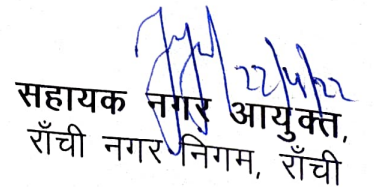 22/4/22
सहायक नगर आयुक्त,
राँची नगर निगम, राँची